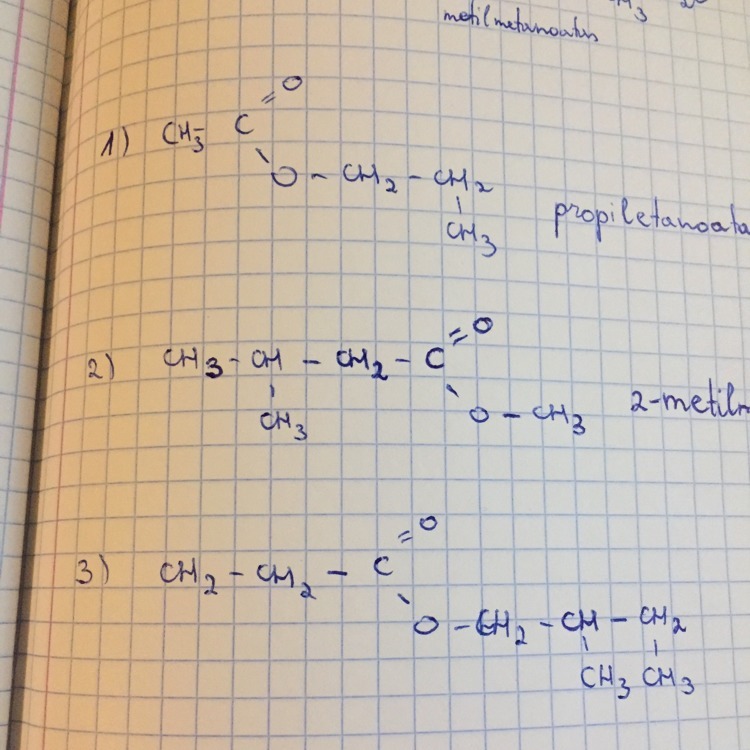 metilmetanoatus
1) CH3 - C = O
O - CH2 - CH2
CH3
propiletanoata
2) CH3 - CH - CH2 - C = O
CH3
O - CH3
2-metil
3) CH2 - CH2 - C = O
O - CH2 - CH - CH2
CH3 CH3